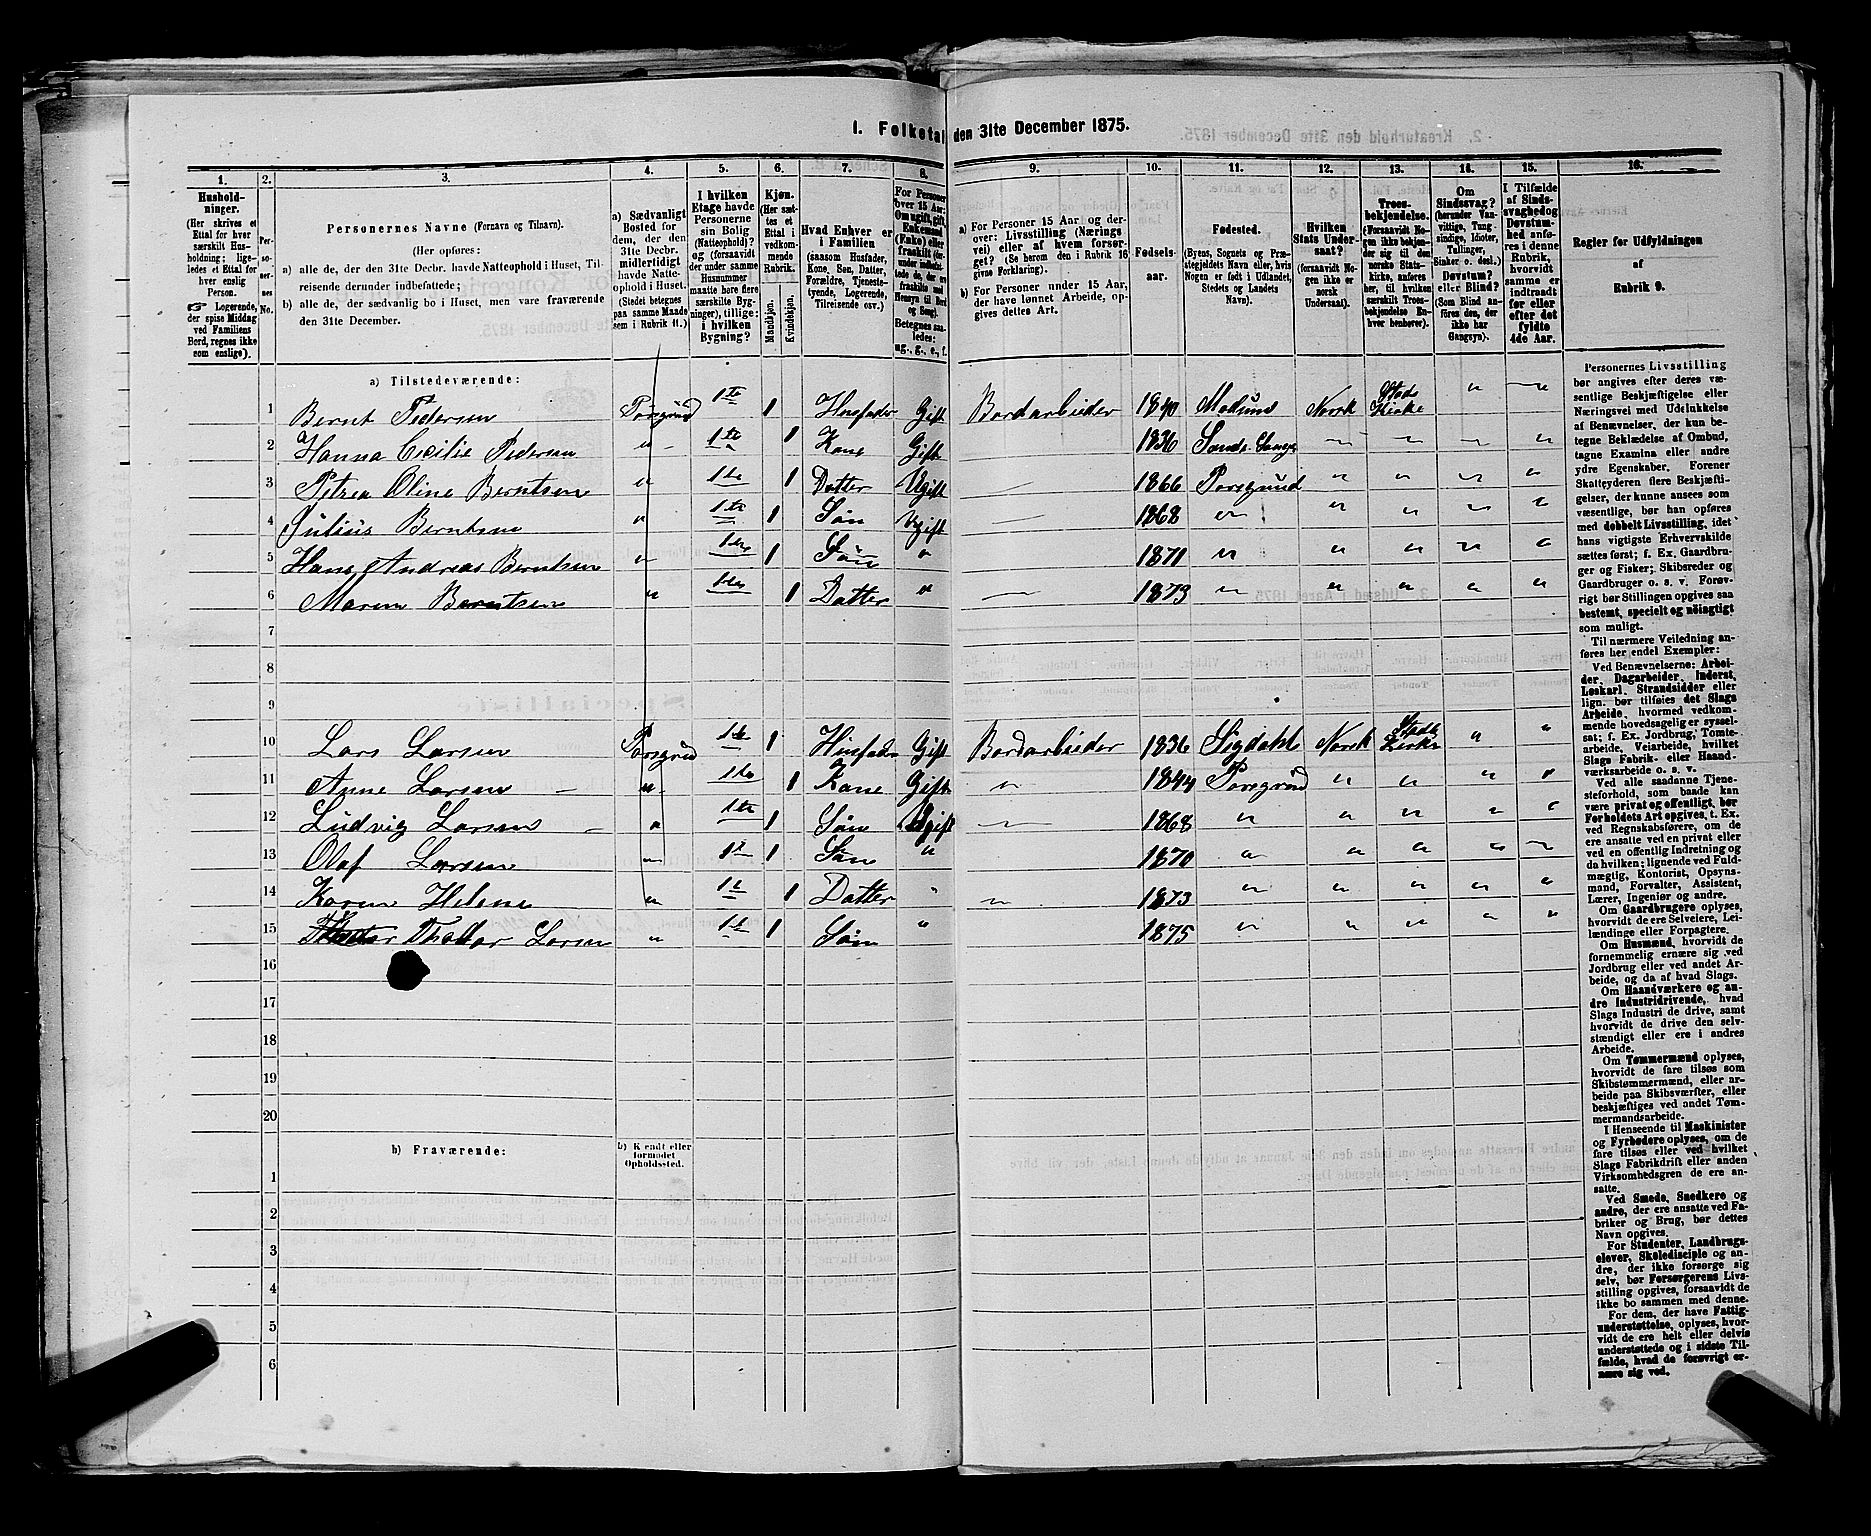 1. Folketal den 31te December 1875.
1. 2. 3. 4. 5. 6. 7. 8. 9. 10. 11. 12. 13. 14. 15. 16.
Hushold-
ninger.
(Her skrives et
Ettal for hver
særskilt Hus-
holdning; lige-
ledes et Ettal for
hver enslig
Person.
☞ Logerende,
der spise Middag
ved Familiens
Bord, regnes ikke
som enslige).
Per-
so-
ner-
nes
No.
Personernes Navne (Fornavn og Tilnavn).
(Her opføres:
a) alle de, der den 31te Decbr. havde Natteophold i Huset, Til-
reisende derunder indbefattede;
b) alle de, der sædvanlig bo i Huset, men vare fraværende
den 31te December.
a) Sædvanligt
Bosted for
dem, der den
31te Decbr.
midlertidigt
havde Natte-
ophold i Huset.
(Stedet betegnes
paa samme Maade
som i Rubrik 11.)
I hvilken
Etage havde
Personerne
sin Bolig
(Natteophold)?
og (forsaavidt
der under samme
Husnummer
maatte høre flere
særskilte Byg-
ninger), tillige:
i hvilken
Bygning?
Kjøn.
(Her sæt-
tes et
Ettal i
vedkom-
mende
Rubrik.
Mandkjøn.
Kvindekjøn.
Hvad Enhver er
i Familien
(saasom Husfader,
Kone, Søn, Datter,
Forældre, Tjeneste-
tyende, Logerende,
Tilreisende osv.)
For Personer
over 15 Aar:
Om ugift, gift,
Enkemand
(Enke) eller
fraskilt
Betegnes saa-
ledes:
ug., g., e., f.
a) For Personer 15 Aar og der-
over: Livsstilling (Nærings
vei) eller af hvem forsør-
get? (Se herom den i Rubrik 16
givne Forklaring).
b) For Personer under 15 Aar,
der have lønnet Arbeide, op-
gives dettes Art.
Fødsels-
aar.
Fødested.
(Byens, Sognets og Præ-
stegjeldets Navn eller, hvis
Nogen er født i Udlandet,
Stedets og Landets
Navn).
Hvilken
Stats Under-
saat?
(forsaavidt No-
gen ikke er
norsk
Undersaat).
Troes-
bekjendelse.
(Forsaavidt No-
gen ikke bekjen-
der sig til den
norske Stats-
kirke, anføres
her, til hvilken
særskilt Troes-
bekjendelse En-
hver henhører).
Om
Sindssvag?
(herunder Van-
vittige, Tung-
sindige, Idioter,
Tullinger,
Sinker o. desl.)
Døvstum?
eller Blind?
(Som Blind an-
føres den, der
ikke har
Gangsyn).
I Tilfælde
af Sinds-
svaghed og
Døvstum-
hed anfø-
res i denne
Rubrik,
hvorvidt
samme er
indtraadt
før eller
efter det
fyldte
4de Aar.
Regler for Udfyldningen
af
Rubrik 9.
a) Tilstedeværende:
1 Bernt Pedersen Porsgrund 1te 1 Husfader Gift Bordarbeider 1840 Modum Norsk Stads Kirke " "
2 Hanna Cecilie Pedersen " 1te 1 Kone Gift 1836 " " " "
3 Petrea Oline Berntsen " 1te 1 Datter Ugift 1866 Porsgrund " " " "
4 Julius Berntsen " 1te 1 Søn Ugift 1868 " " " " "
5 Hans Andreas Berntsen " 1te 1 Søn " 1871 " " " " "
6 Maren Berntsen " 1te 1 Datter " 1873 " " " " "
7
8
9
10 Lars Larsen Porsgrund 1te 1 Husfader Gift Bordarbeider 1836 Sigdahl Norsk Stads Kirke " "
11 Anne Larsen " 1te 1 Kone Gift " 1844 Porsgrund " " " "
12 Ludvig Larsen " 1te 1 Søn Ugift 1868 " " " " "
13 Olaf Larsen " 1t 1 Søn " 1870 " " " " "
14 Karen Helene " 1t 1 Datter " " 1873 " " " " "
15 Thollar Larsen " 1t 1 Søn " 1875 " " " " "
16
17
18
19
20
b) Fraværende:
b) Kjendt eller
formodet
Opholdssted.
1
2
3
4
5
6
Personernes Livsstilling
bør angives efter deres væ-
sentlige Beskjæftigelse eller
Næringsvei med Udelukkelse
af Benævnelser, der kun be-
tegne Beklædelse af Ombud,
tagne Examina eller andre
ydre Egenskaber. Forener
Skatteyderen flere Beskjæfti-
gelser, der kunne ansees som
væsentlige, bør han opføres
med dobbelt Livsstilling, idet
hans vigtigste Erhvervskilde
sættes først; f. Ex. Gaardbru-
ger og Fisker; Skibsreder og
Gaardbruger o. s. v. Forøv-
rigt bør Stillingen opgives saa
bestemt, specielt og nöiagtigt
som muligt.
Til nærmere Veiledning an-
føres her endel Exempler:
Ved Benævnelserne: Arbei-
der, Dagarbeider, Inderst,
Løskarl, Strandsidder eller
lign. bør tilføies det Slags
Arbeide, hvormed vedkom-
mende hovedsagelig er syssel-
sat; f. Ex. Jordbrug, Tomte-
arbeide, Veiarbeide, hvilket
Slags Fabrik- eller Haand-
værksarbeide o. s. v.
Ved alle saadanne Tjene-
steforhold, som baade kan
være privat og offentligt, bør
Forholdets Art opgives, t. Ex.
ved Regnskabsførere, om de
ere ansatte ved en privat eller
ved en offentlig Indretning og
da hvilken; lignende ved Fuld-
mægtig, Kontorist, Opsyns-
mand, Forvalter, Assistent,
Lærer, Ingeniør og andre.
Om Gaardbrugere oplyses,
hvorvidt de ere Selveiere, Lei-
lændinge eller Forpagtere.
Om Husmænd, hvorvidt de
fornemmelig ernære sig ved
Jordbrug eller ved andet Ar-
beide, og da af hvad Slags.
Om Haandværkere og an-
dre Industridrivende, hvad
Slags Industri de drive, samt
hvorvidt de drive den selv-
stændigt eller ere i andres
Arbeide.
Om Tømmermænd oplyses,
hvorvidt de fare tilsøs som
Skibstømmermænd, eller ar-
beide paa Skibsværfter, eller
beskjæftiges ved andet Tøm-
mermandsarbeide.
I Henseende til Maskinister
og Fyrbødere oplyses, om de
fare tilsøs eller ved hvilket
Slags Fabrikdrift eller anden
Virksomhedsgren de ere an-
satte.
Ved Smede, Snedkere og
andre, der ere ansatte ved Fa-
briker og Brug, bør dettes
Navn opgives.
For Studenter, Landbrugs-
elever, Skoledisciple og an-
dre, der ikke forsørge sig
selv, bør Forsørgerens Livs-
stilling opgives, forsaavidt de
ikke bo sammen med denne.
For dem, der have Fattig-
understøttelse, oplyses, hvor-
vidt de ere helt eller delvis
understøttede og i sidste Til-
fælde, hvad de forøvrigt er-
nære sig ved.